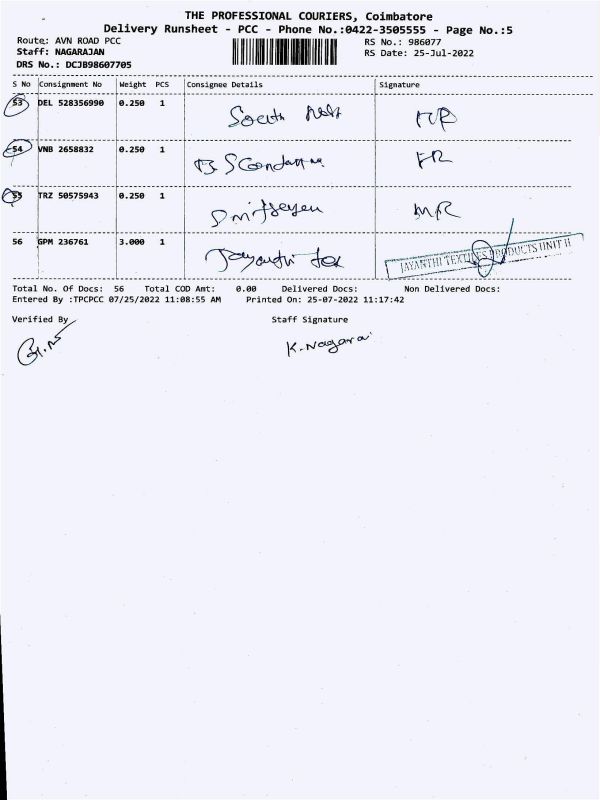 THE PROFESSIONAL COURIERS, Coimbatore
Delivery Runsheet - PCC - Phone No.:0422-3505555 - Page No.:5
Route: AVN ROAD PCC RS No.: 986077
Staff: NAGARAJAN RS Date: 25-Jul-2022
DRS No.: DCJB98607705
S No Consignment No Weight PCS Consignee Details Signature
53 DEL 528356990 0.250 1 South
54 VNB 2658832 0.250 1
55 TRZ 50575943 0.250 1 MR
56 GPM 236761 3.000 1 Jayanthi Tex JAYANTHI TEXTILES PRODUCTS UNIT II
Total No. Of Docs: 56 Total COD Amt: 0.00 Delivered Docs: Non Delivered Docs:
Entered By :TPCPCC 07/25/2022 11:08:55 AM Printed On: 25-07-2022 11:17:42
Verified By Staff Signature
K. Nagaraj